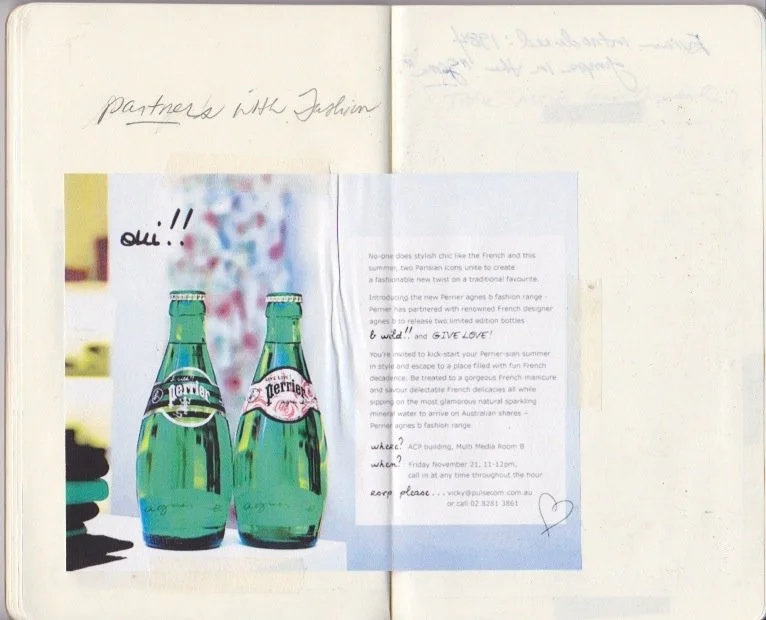 partners with Fashion
oui!!
No-one does stylish chic like the French and this
summer, two Parisian icons unite to create
a fashionable new twist on a traditional favourite.
Introducing the new Perrier agnes b fashion range -
Perrier has partnered with renowned French designer
agnes b to release two limited edition bottles
b wild!! and GIVE LOVE!
You're invited to kick-start your Perrier-sian summer
in style and escape to a place filled with fun French
decadence. Be treated to a gorgeous French manicure
and savour delectable French delicacies all while
sipping on the most glamorous natural sparkling
mineral water to arrive on Australian shares –
Perrier agnes b fashion range.
where? ACP building, Multi Media Room B
when? Friday November 21, 11-12pm,
call in at any time throughout the hour
rsvp please... vicky@pulsecom.com.au
or call 02 8281 3861
perrier
perrier